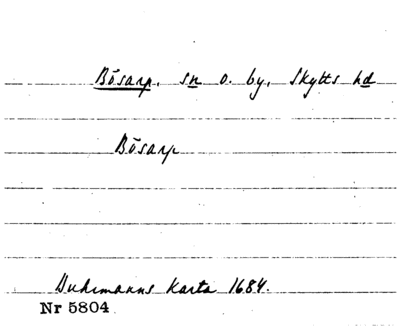 Bösarp, sn o. by, Skytts hd
Bösarp
Buhrmanns Karta 1684.
Nr 5804